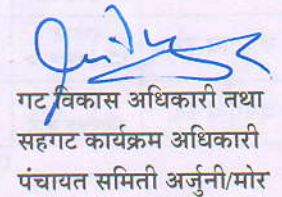 गट विकास अधिकारी तथा
सहगट कार्यक्रम अधिकारी
पंचायत समिती अर्जुनी/मोर